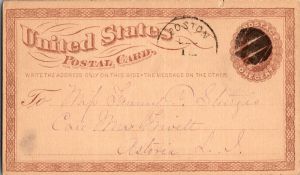 United States
BOSTON
POSTAL CARD.
WRITE THE ADDRESS ONLY ON THIS SIDE - THE MESSAGE ON THE OTHER
ONE CENT
To Miss P. Sturgis
Care
Astoria L. I.